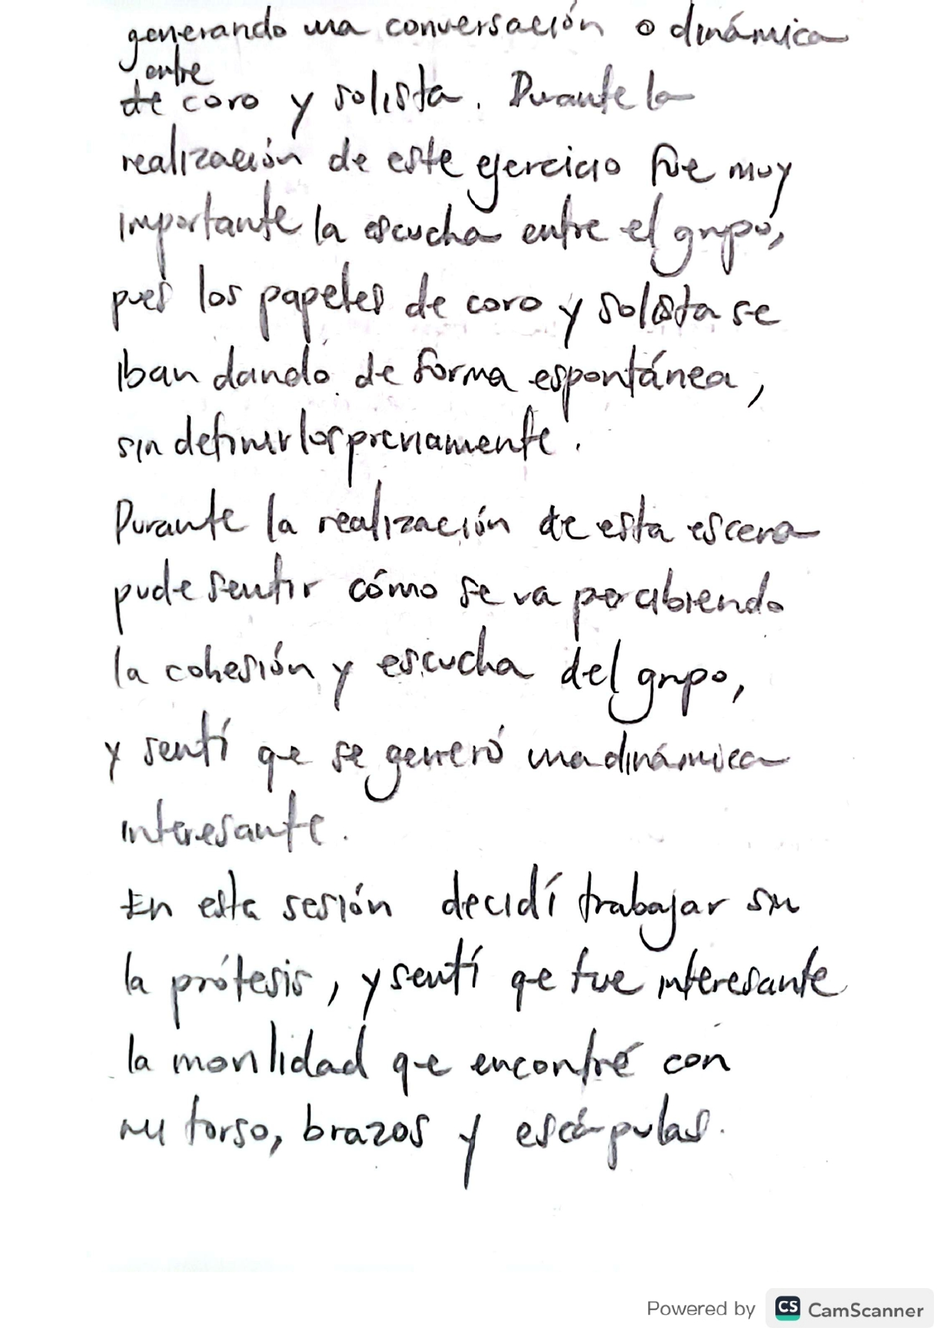 generando una conversación o dinámica
entre
de coro y solista. Durante la
realización de este ejercicio fue muy
importante la escucha entre el grupo,
pues los papeles de coro y solista se
iban dando de forma espontánea,
sin definirlos previamente.
Durante la realización de esta escena
pude sentir cómo se va percibiendo
la cohesión y escucha del grupo,
y sentí que se generó una dinámica
interesante.
En esta sesión decidí trabajar sin
la prótesis, y sentí que fue interesante
la movilidad que encontré con
mi torso, brazos y escápulas.
Powered by CS CamScanner